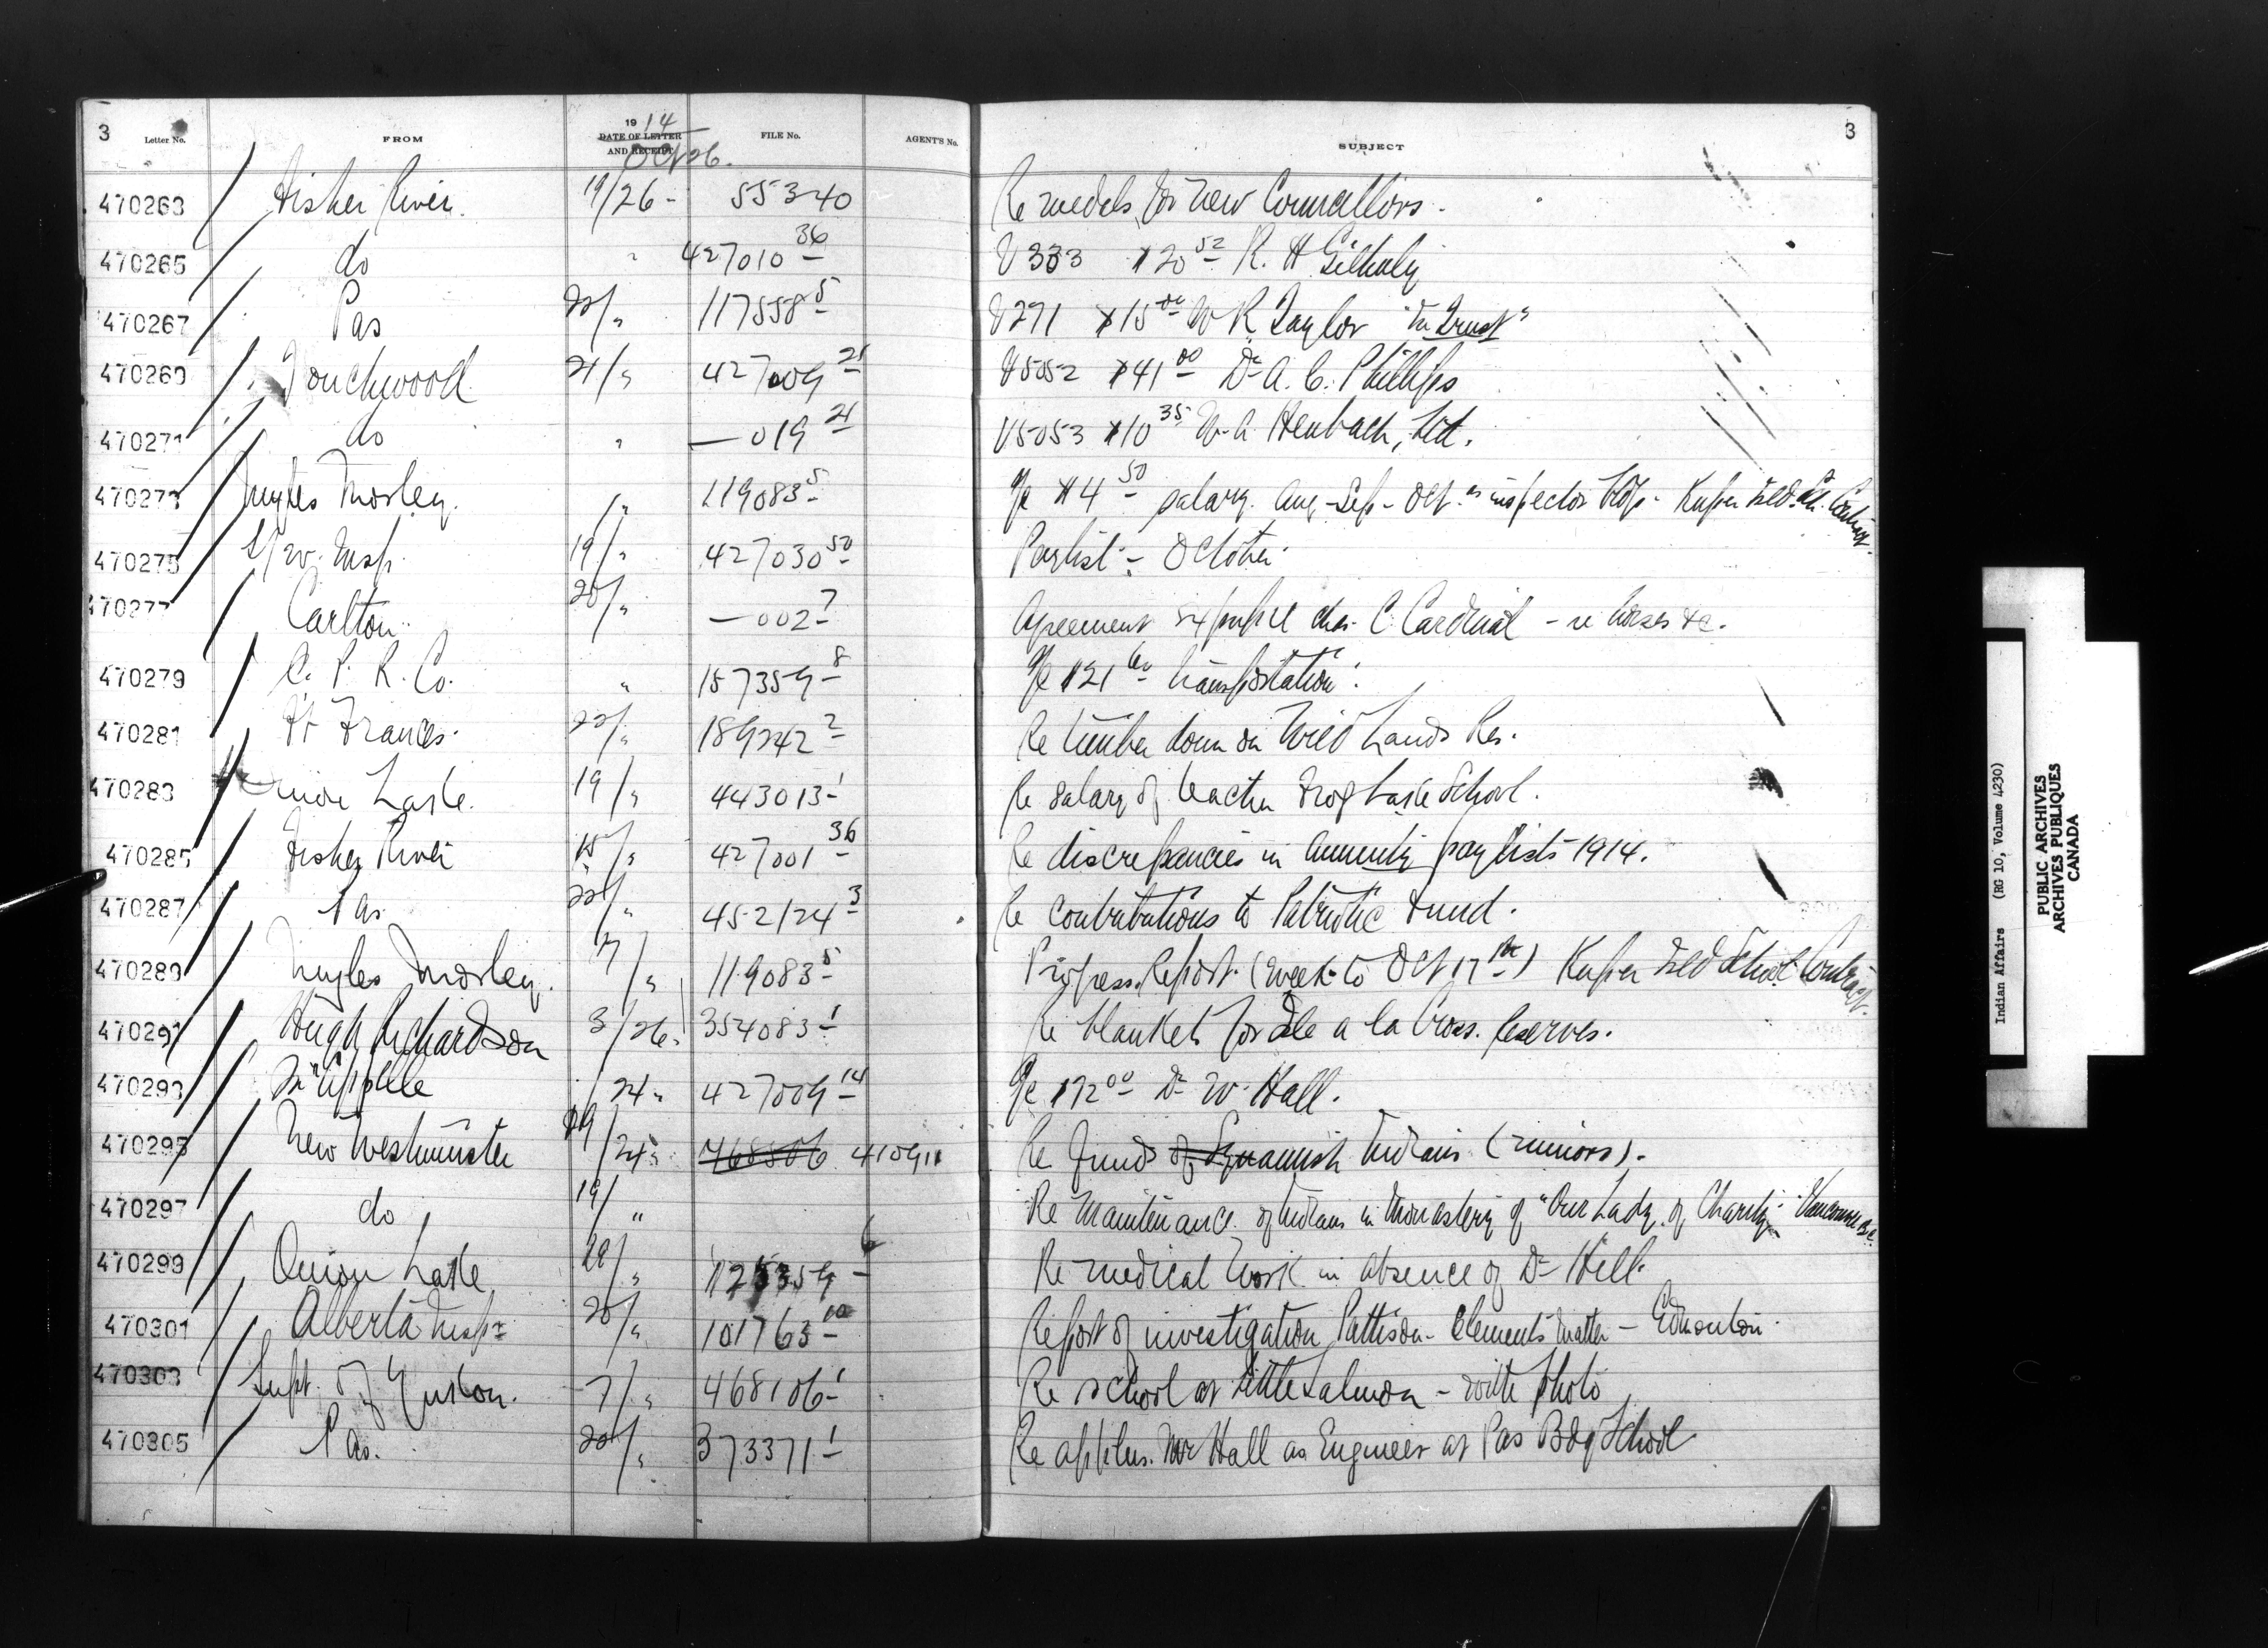 3 Letter No. FROM 1914 DATE OF LETTER AND RECEIPT Oct 26. FILE No. AGENT'S No. SUBJECT 3
470263 Fisher River. 19/26 - 55340 Re medals for new Councillors.
470265 do " 427010 36 V333 $20 52 R. H Gilhuly
470267 Pas 22/" 117558 5 V271 $15 00 W R Taylor "In Trust"
470269 Touchwood 21/" 427009 21 V5052 $41 00 Dr A. C. Phillips
470271 do " — 019 21 V5053 $10 35 W. A Heubach, Ltd.
470273 Morley. /" 119083 5 a/c $4 50 salary Aug - Sep - Oct as inspector bldg. Kuper Isld. Sch. Contract.
470275 Insp. 19/" 427030 50 Paylist - October
470277 Carlton 20/" — 002 7 Agreement ex pupil Chas. C. Cardinal - re horses &c.
470279 C. P. R. Co. " 157359 8 a/c $21 transportation.
470281 Ft Frances. 22/" 189242 2 Re timber down on Wild Lands Res.
470283 Onion Lake. 19/" 443013 1 Re salary of teacher Frog Lake School.
470285 Fisher River 15/" 427001 36 Re discrepancies in annuity pay lists 1914.
470287 Pas 22/" 452124 3 Re contributions to Patriotic Fund.
470289 Morley. 17/" 119083 5 Progress Report (week to Oct 17th) Kuper Isld School Contract.
470291 Hugh Richardson 3/26. 354083 1 Re blankets for Isle a la Cross. Reserves.
470293 Qu'Appelle /24. 427009 14 a/c $12 00 Dr W. Hall.
470295 New Westminster 19/24. 468506 410911 Re funds of Squamish Indians (minors).
470297 do 19/" Re maintenance of Indians in Monastery of "Our Lady of Charity" Vancouver B.C.
470299 Onion Lake 19/" 6 Re medical work in absence of Dr Hill.
470301 Alberta Insp. 20/" 101763 10 Report of investigation Pattison - Clements matter - Edmonton.
470303 Supt. of Yukon. 7/" 468106 1 Re school at Little Salmon - with photo
470305 Pas. 20/" 373371 1 Re applcn. Mr Hall as Engineer at Pas Bdg School
Indian Affairs (RG 10, Volume 4230)
PUBLIC ARCHIVES
ARCHIVES PUBLIQUES
CANADA